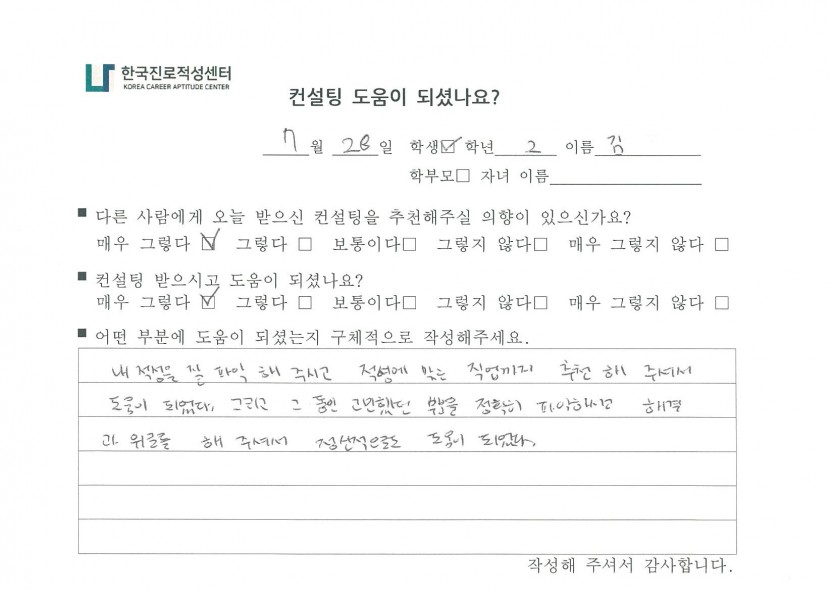 한국진로적성센터
KOREA CAREER APTITUDE CENTER
컨설팅 도움이 되셨나요?
7월 28일 학생☑ 학년 2 이름 김
학부모□ 자녀 이름
■ 다른 사람에게 오늘 받으신 컨설팅을 추천해주실 의향이 있으신가요?
매우 그렇다 ☑ 그렇다 □ 보통이다□ 그렇지 않다□ 매우 그렇지 않다 □
■ 컨설팅 받으시고 도움이 되셨나요?
매우 그렇다 ☑ 그렇다 □ 보통이다□ 그렇지 않다□ 매우 그렇지 않다 □
■ 어떤 부분에 도움이 되셨는지 구체적으로 작성해주세요.
내 적성을 잘 파악 해 주시고 적성에 맞는 직업까지 추천 해 주셔서
도움이 되었다. 그리고 그 동안 고민했던 부분을 정확히 파악하시고 해결
과 위로를 해 주셔서 정신적으로도 도움이 되었다.
작성해 주셔서 감사합니다.